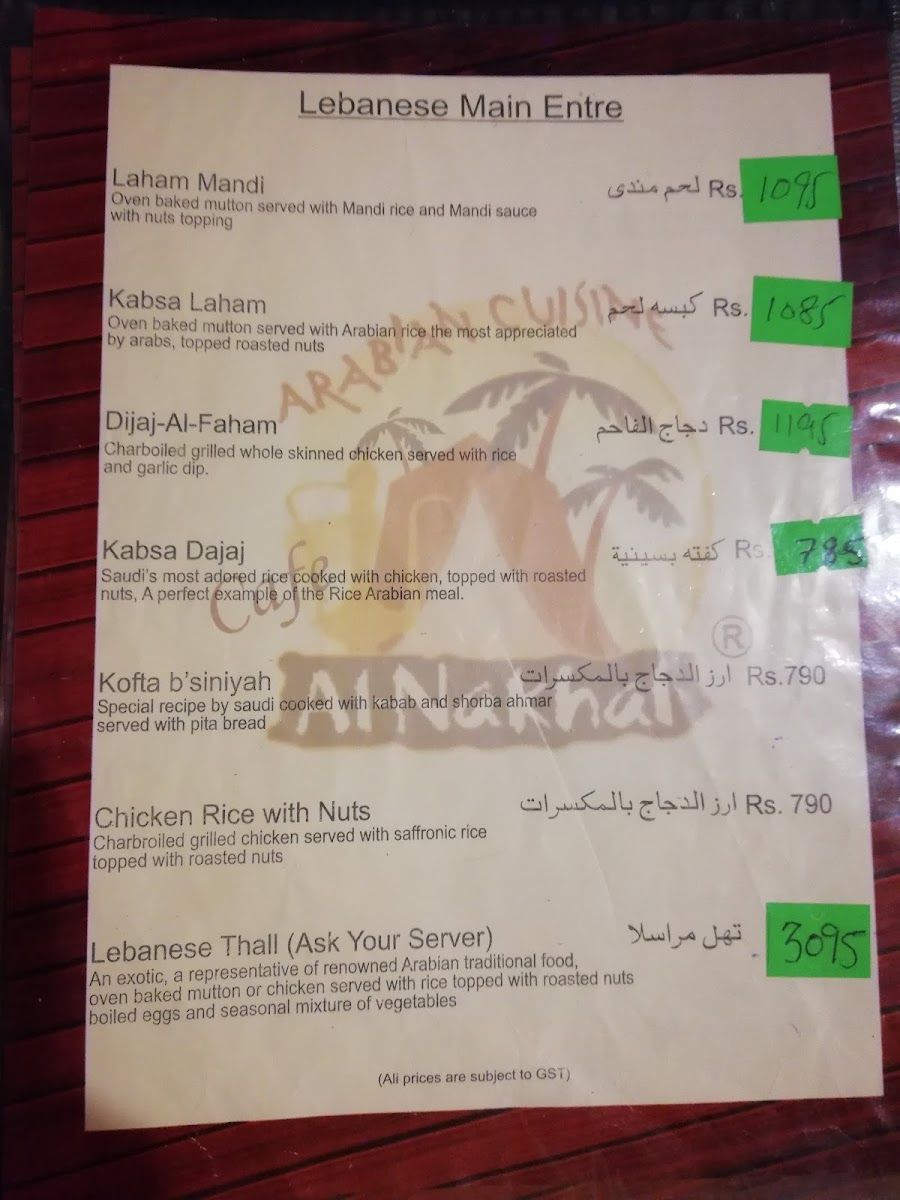 Lebanese Main Entre
Laham Mandi لحم مندى Rs. 1095
Oven baked mutton served with Mandi rice and Mandi sauce
with nuts topping
Kabsa Laham كبسه لحم Rs. 1085
Oven baked mutton served with Arabian rice the most appreciated
by arabs, topped roasted nuts
ARABIAN CUISINE
Dijaj-Al-Faham دجاج الفاحم Rs. 1195
Charboiled grilled whole skinned chicken served with rice
and garlic dip.
Kabsa Dajaj كفته بسينية Rs. 785
Saudi's most adored rice cooked with chicken, topped with roasted
nuts, A perfect example of the Rice Arabian meal.
Cafe
®
Kofta b'siniyah ارز الدجاج بالمكسرات Rs.790
Special recipe by saudi cooked with kabab and shorba ahmar
served with pita bread
Al Nakhal
Chicken Rice with Nuts ارز الدجاج بالمكسرات Rs. 790
Charbroiled grilled chicken served with saffronic rice
topped with roasted nuts
Lebanese Thall (Ask Your Server) تهل مراسلا 3095
An exotic, a representative of renowned Arabian traditional food,
oven baked mutton or chicken served with rice topped with roasted nuts
boiled eggs and seasonal mixture of vegetables
(All prices are subject to GST)